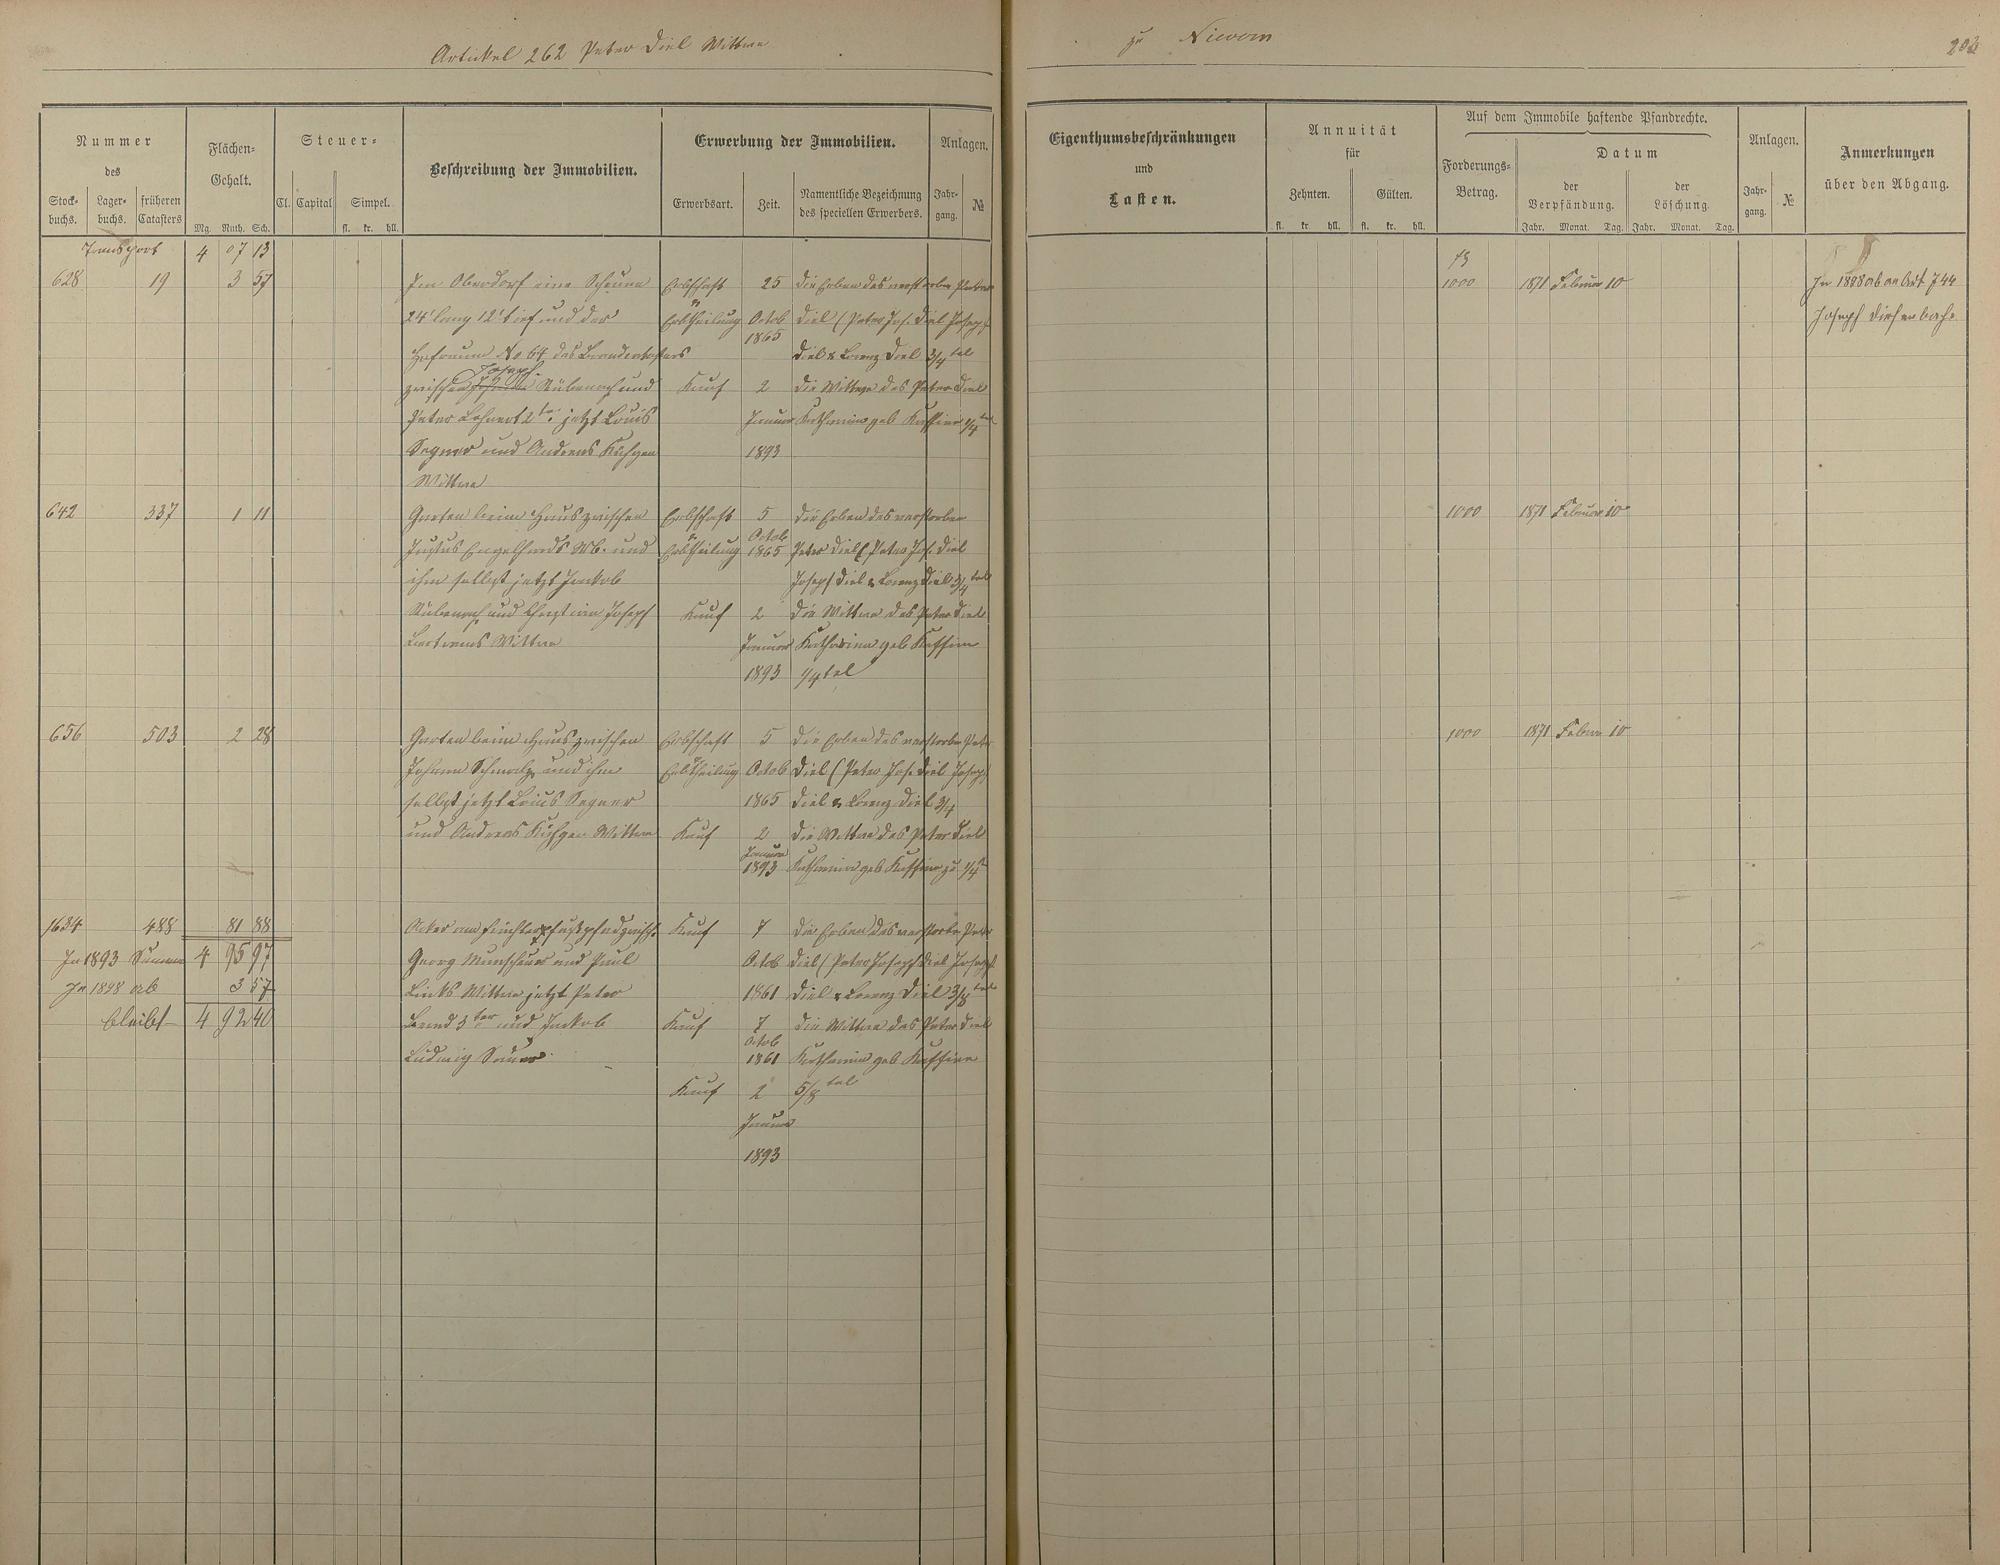 Artikel 262 Peter Diel Wittwe
zu Nievern
Nummer
des
Stock-
buchs.
Lager-
buchs.
früheren
Catasters
Flächen-
Gehalt.
Mg. Ruth. Sch.
Steuer-
Cl. Capital Simpel.
fl. kr. hll.
Beschreibung der Immobilien.
Erwerbung der Immobilien.
Erwerbsart. Zeit.
Namentliche Bezeichnung
des speciellen Erwerbers.
Anlagen.
Jahr-
gang.
№
Transport 4 07 13
628 19 3 57
Im Oberdorf eine Scheuer
24' lang 12' tief und der
Hofraum No 64 des Brandcatasters
zwischen Joseph Rübenach und
Peter Lehnert 2ter jetzt Louis
Segner und Andreas
Wittwe
Erbschaft
u
Erbtheilung
25
Octob
1865
die Erben des verstorben Peter
Diel (Peter Jos. Diel Joseph
Diel & Lorenz Diel 3/4 tel
Kauf
2
Januar
1893
die Wittwe des Peter Diel
Katharina geb 1/4 tel
642 337 1 11
Garten beim Haus zwischen
Justus Engelhards Wb. und
ihm selbst jetzt Jackob
Rübenach und Christian Joseph
Wittwe
Erbschaft
u
Erbtheilung
5
Octob
1865
die Erben des verstorben
Peter Diel (Peter Jos. Diel
Joseph Diel & Lorenz Diel 3/4 tel
Kauf
2
Januar
1893
die Wittwe des Peter Diel
Katharina geb
1/4 tel
656 503 2 28
Garten beim Haus zwischen
Johann Schmalz und ihm
selbst jetzt Louis Segner
und Andreas Wittwe
Erbschaft
u
Erbtheilung
5
Octob
1865
die Erben des verstorben Peter
Diel (Peter Jos. Diel Joseph
Diel & Lorenz Diel 3/4
Kauf
2
Januar
1893
die Wittwe des Peter Diel
Katharina geb zu 1/4
1634 488 81 88
In 1893 Summa 4 95 97
In 1898 ab 3 57
bleibt 4 92 40
Acker am
Georg und Paul
Links Wittwe jetzt Peter
3ter und Jackob
Ludwig Sauer.
Kauf
7
Octob
1861
die Erben des verstorb Peter
Diel (Peter Joseph Diel Joseph
Diel & Lorenz Diel 3/8 tel
Kauf
7
Octob
1861
die Wittwe des Peter Diel
Katharina geb
5/8 tel
Kauf
2
Januar
1893
Eigenthumsbeschränkungen
und
Lasten.
Annuität
für
Zehnten. Gülten.
fl. kr. hll. fl. kr. hll.
Auf dem Immobile haftende Pfandrechte.
Forderungs-
Betrag.
Datum
der
Verpfändung.
der
Löschung.
Jahr. Monat. Tag. Jahr. Monat. Tag.
Anlagen.
Jahr-
gang.
№
Anmerkungen
über den Abgang.
1000 1871 Februar 10
In 1898 ab an Art 744
Joseph Diefenbach
1000 1871 Februar 10
1000 1871 Februar 10